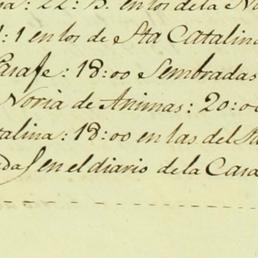 : 22: 13. en los de la No
: 1 en los de Sta Catalina
Garafe: 18:00 Sembradas
Noria de Animas: 20:00
talina: 18:00 en las del Sa
das en el diario de la Casa